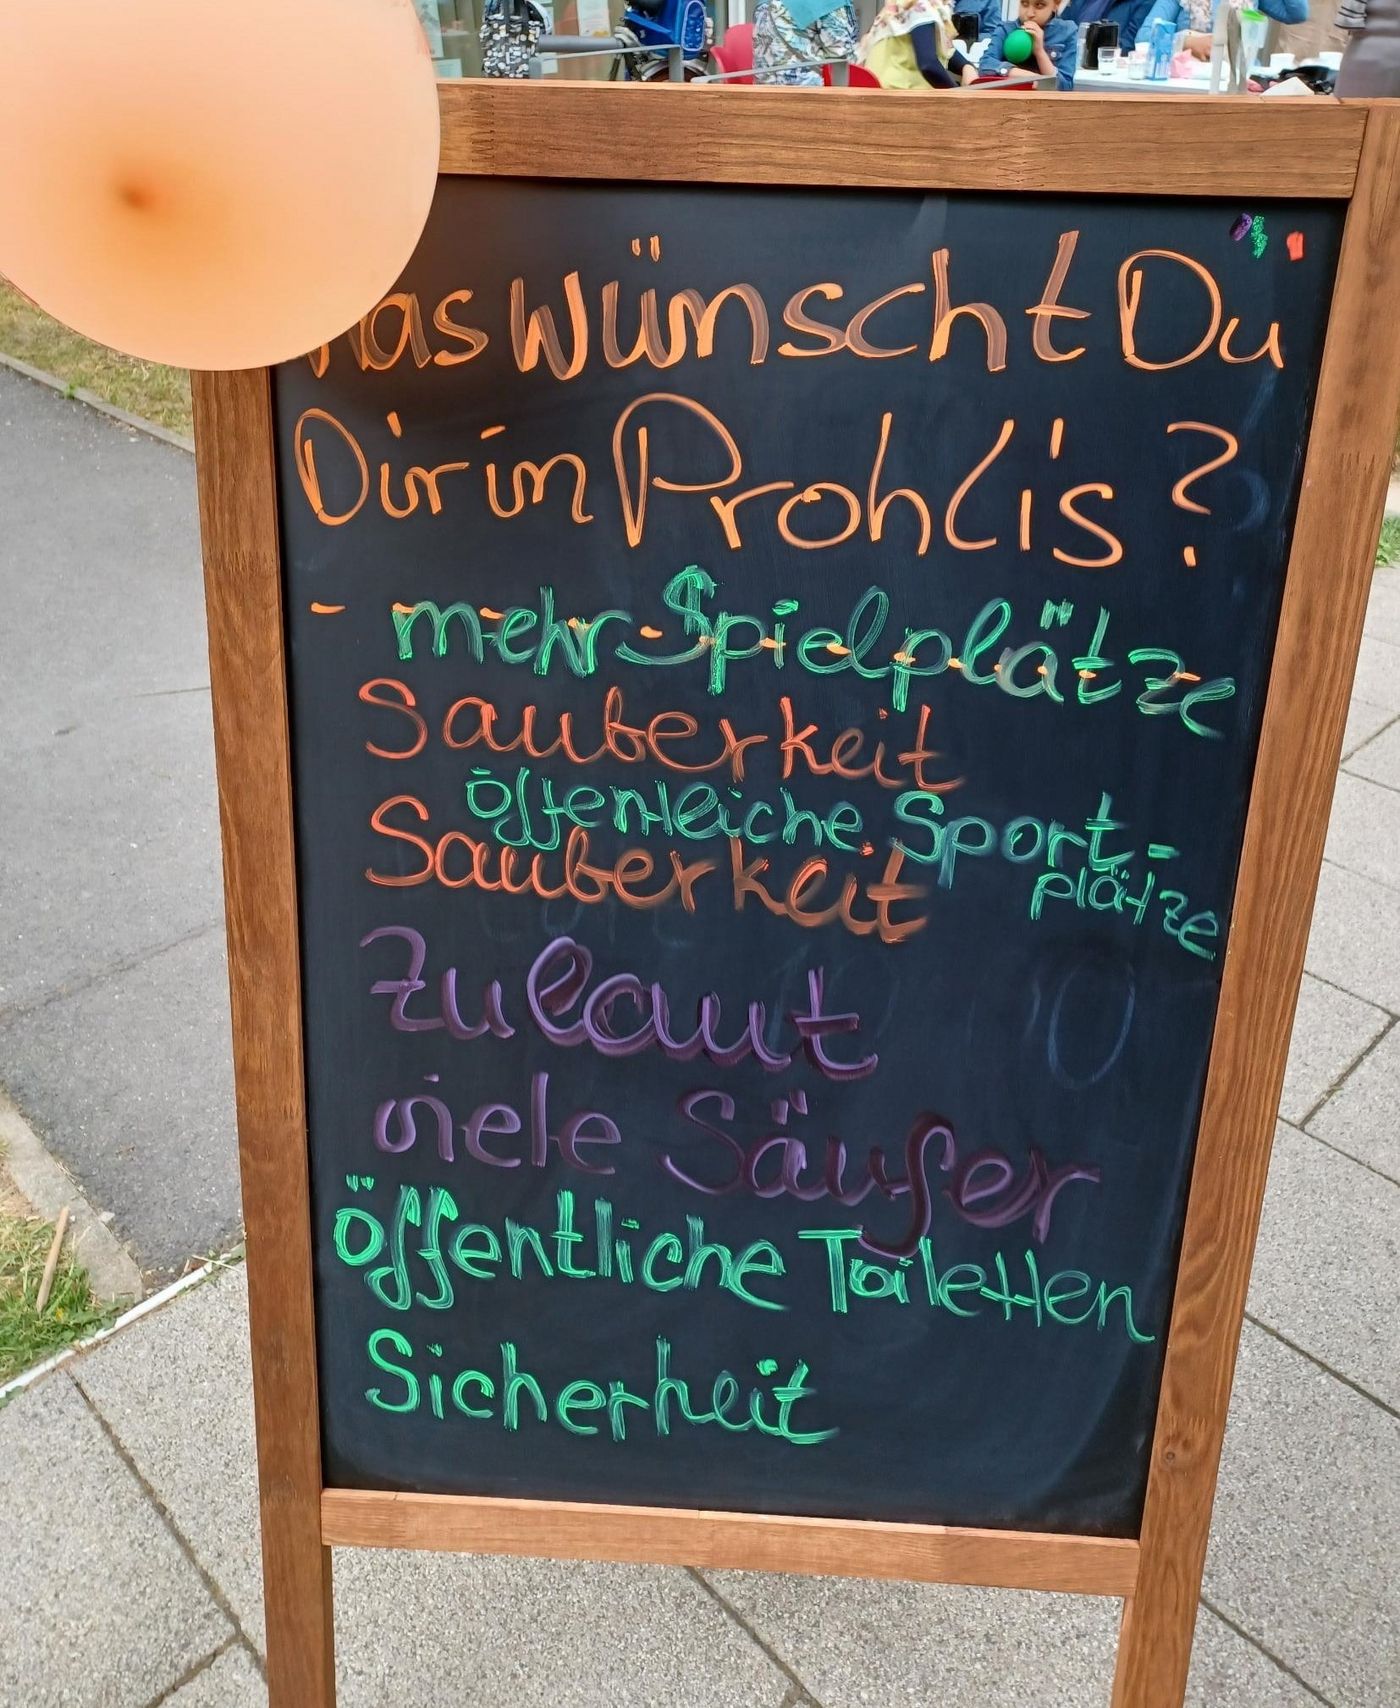 Was wünscht Du
Dir in Prohlis?
- mehr Spielplätze
Sauberkeit
öffentliche Sport-
plätze
Sauberkeit
Zu laut
viele Säufer
öffentliche Toiletten
Sicherheit